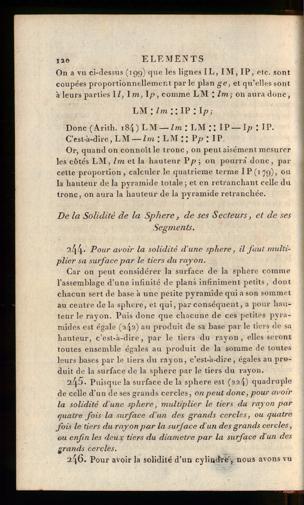 120 ELEMENTS
On a vu ci-dessus (199) que les lignes IL, IM, IP, etc. sont
coupées proportionnellement par le plan ge, et qu'elles sont
à leurs parties Il, Im, Ip, comme LM : lm; on aura donc,
LM : lm :: IP : Ip;
Donc (Arith. 184) LM — lm : LM :: IP — Ip : IP.
C'est-à-dire, LM — lm : LM :: Pp : IP.
Or, quand on connoît le tronc, on peut aisément mesurer
les côtés LM, lm et la hauteur Pp; on pourra donc, par
cette proportion, calculer le quatrieme terme IP (179), ou
la hauteur de la pyramide totale; et en retranchant celle du
tronc, on aura la hauteur de la pyramide retranchée.
De la Solidité de la Sphere, de ses Secteurs, et de ses
Segments.
244. Pour avoir la solidité d'une sphere, il faut multi-
plier sa surface par le tiers du rayon.
Car on peut considérer la surface de la sphere comme
l'assemblage d'une infinité de plans infiniment petits, dont
chacun sert de base à une petite pyramide qui a son sommet
au centre de la sphere, et qui, par conséquent, a pour hau-
teur le rayon. Puis donc que chacune de ces petites pyra-
mides est égale (242) au produit de sa base par le tiers de sa
hauteur, c'est-à-dire, par le tiers du rayon, elles seront
toutes ensemble égales au produit de la somme de toutes
leurs bases par le tiers du rayon, c'est-à-dire, égales au pro-
duit de la surface de la sphere par le tiers du rayon.
245. Puisque la surface de la sphere est (224) quadruple
de celle d'un de ses grands cercles, on peut donc, pour avoir
la solidité d'une sphere, multiplier le tiers du rayon par
quatre fois la surface d'un des grands cercles, ou quatre
fois le tiers du rayon par la surface d'un des grands cercles,
ou enfin les deux tiers du diametre par la surface d'un des
grands cercles.
246. Pour avoir la solidité d'un cylindre, nous avons vu